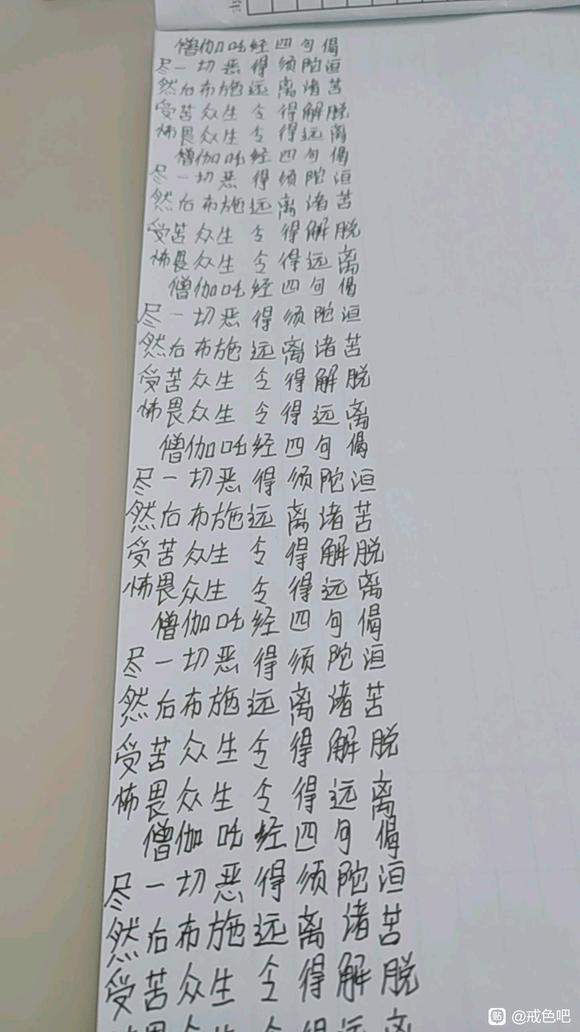 僧伽吒经四句偈
尽一切恶得须陀洹
然后布施远离诸苦
受苦众生令得解脱
怖畏众生令得远离
僧伽吒经四句偈
尽一切恶得须陀洹
然后布施远离诸苦
受苦众生令得解脱
怖畏众生令得远离
僧伽吒经四句偈
尽一切恶得须陀洹
然后布施远离诸苦
受苦众生令得解脱
怖畏众生令得远离
僧伽吒经四句偈
尽一切恶得须陀洹
然后布施远离诸苦
受苦众生令得解脱
怖畏众生令得远离
僧伽吒经四句偈
尽一切恶得须陀洹
然后布施远离诸苦
受苦众生令得解脱
怖畏众生令得远离
僧伽吒经四句偈
尽一切恶得须陀洹
然后布施远离诸苦
受苦众生令得解脱
怖畏众生令得远离
贴 @戒色吧